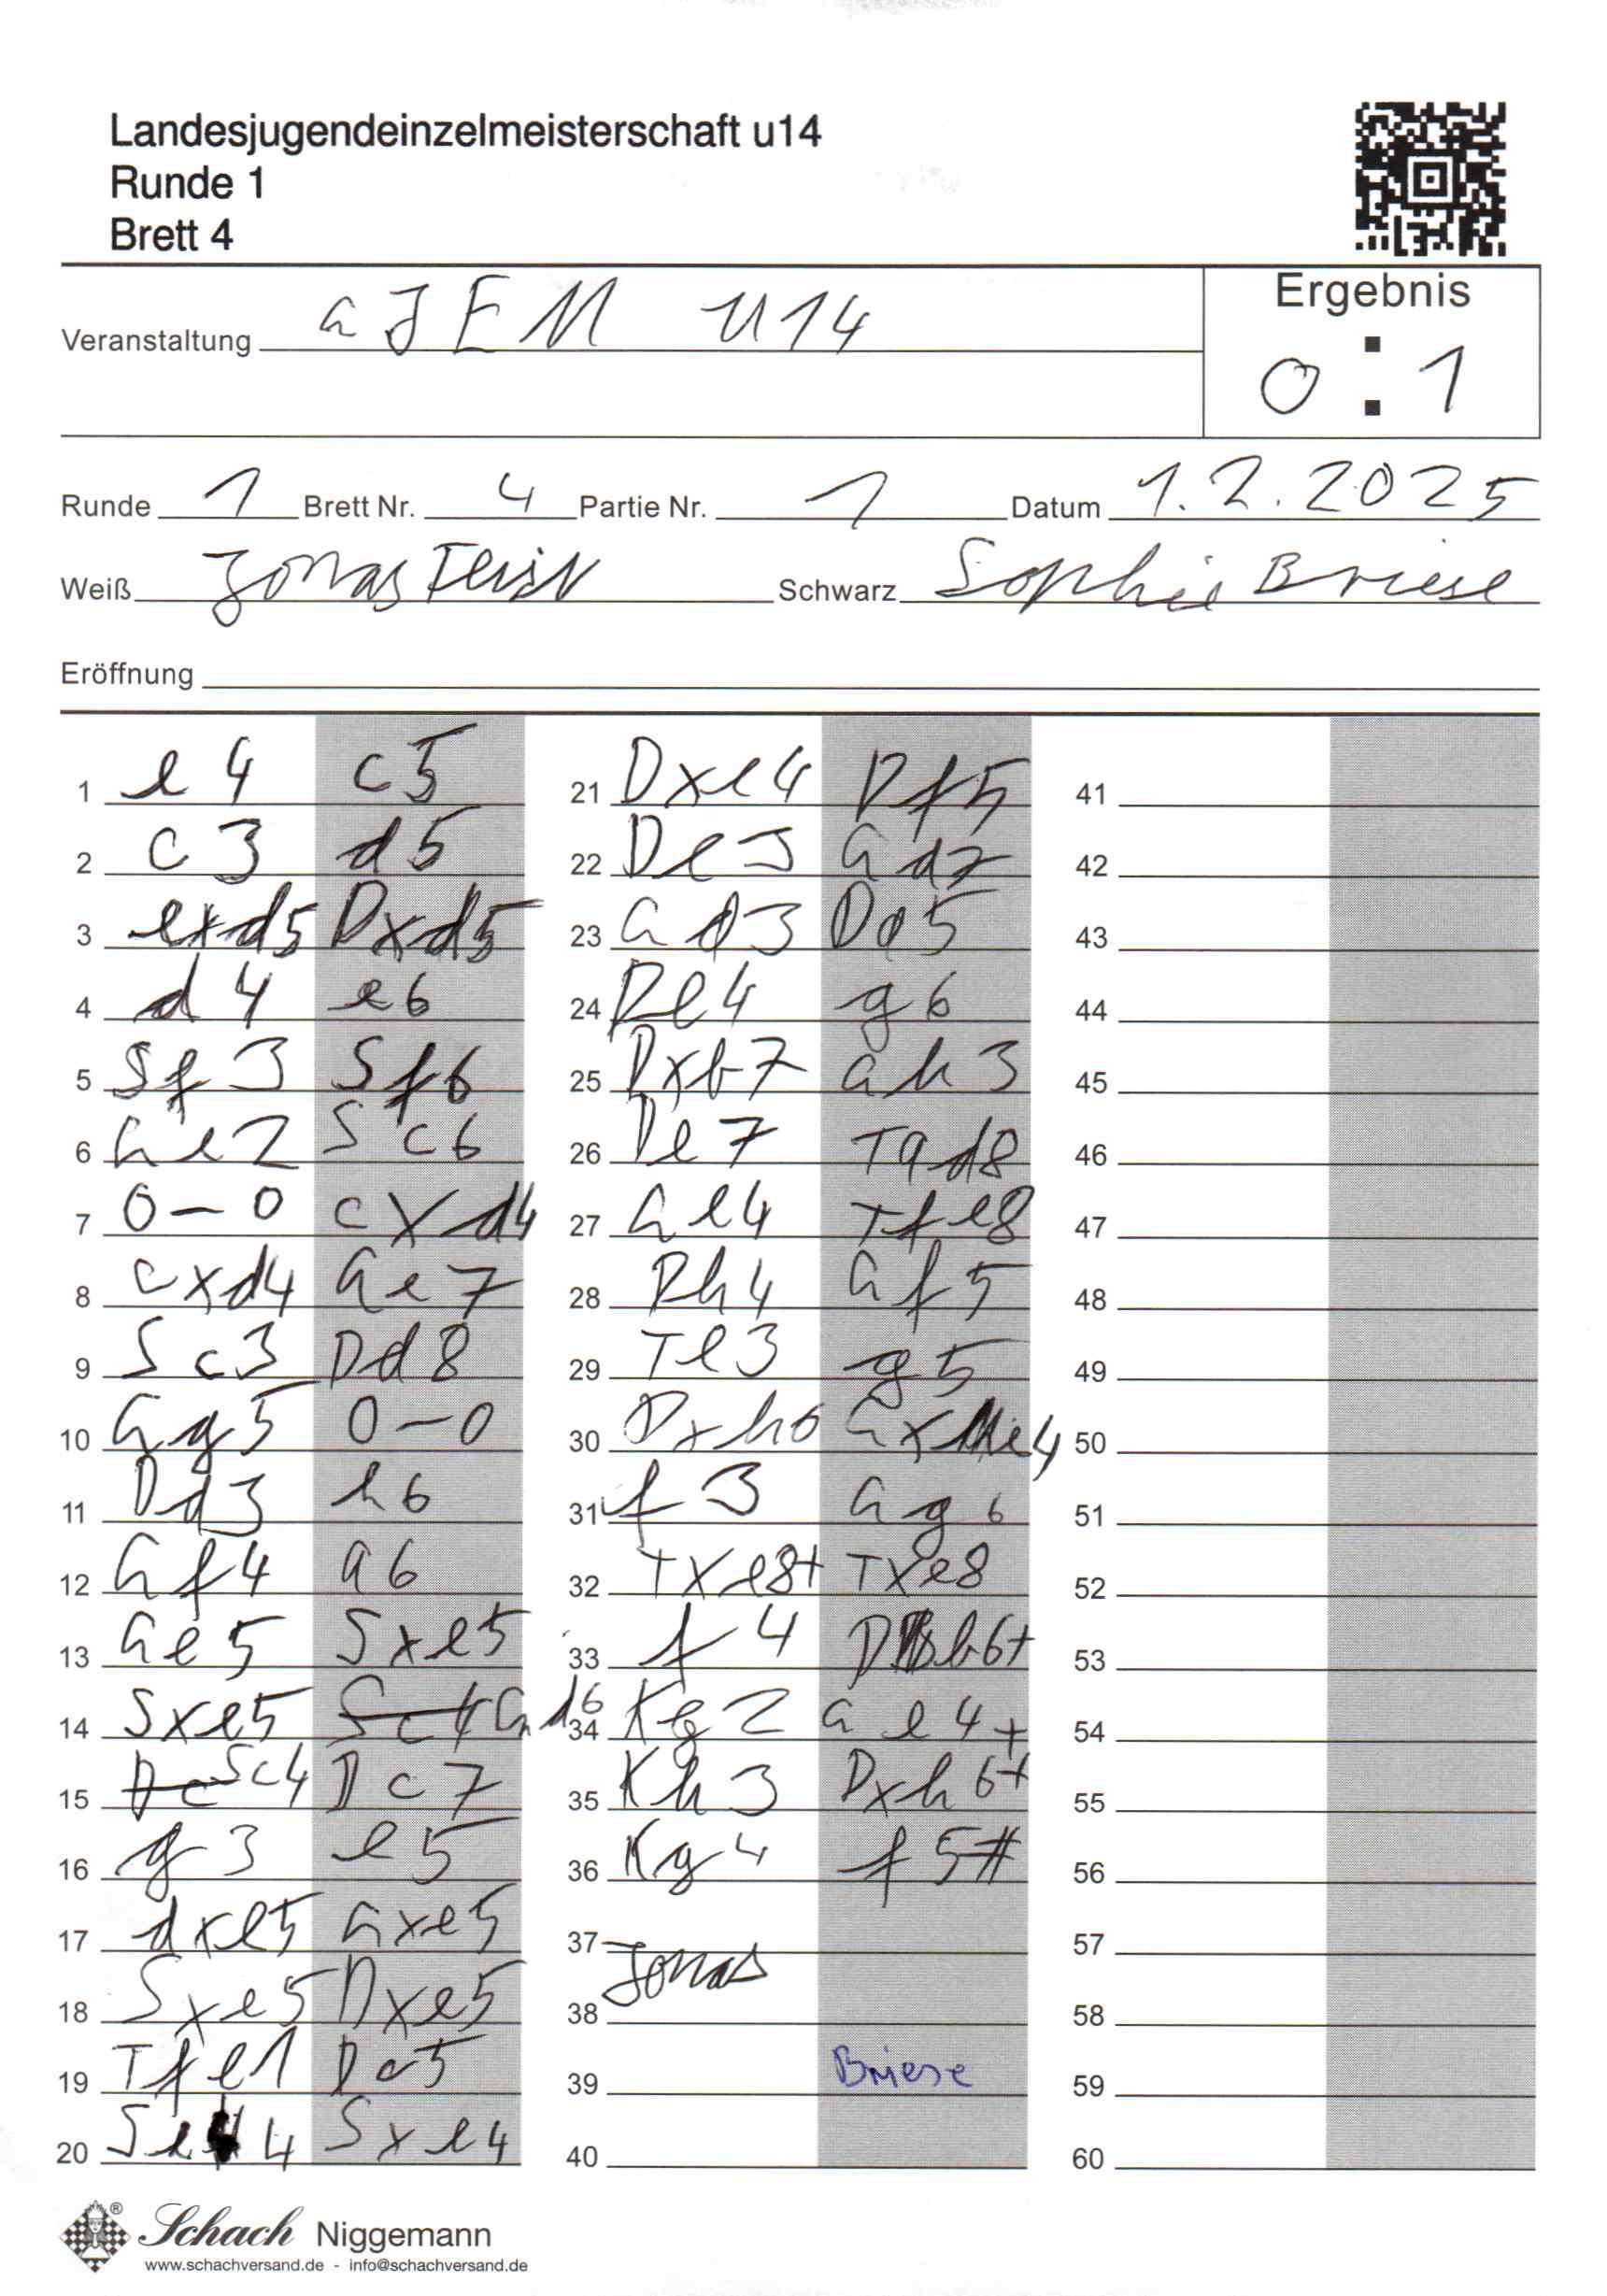 Landesjugendeinzelmeisterschaft u14
Runde 1
Brett 4
Veranstaltung LJEM U14
Ergebnis
0 : 1
Runde 1 Brett Nr. 4 Partie Nr. 1 Datum 1.2.2025
Weiß Jonas Schwarz Sophie Briese
Eröffnung
1 e4 c5 21 Dxe4 Df5 41
2 c3 d5 22 De3 Ld7 42
3 exd5 Dxd5 23 Ld3 Da5 43
4 d4 e6 24 De4 g6 44
5 Sf3 Sf6 25 Dxb7 Lh3 45
6 Le2 Sc6 26 De7 Tad8 46
7 0-0 cxd4 27 Le4 Tfe8 47
8 cxd4 Le7 28 Dh4 Lf5 48
9 Sc3 Dd8 29 Te3 g5 49
10 Lg5 0-0 30 Dxh6 Lxe4 50
11 Dd3 h6 31 f3 Lg6 51
12 Lf4 a6 32 Txe8+ Txe8 52
13 Le5 Sxe5 33 f4 Db6+ 53
14 Sxe5 Sc4 Ld6 34 Kg2 Le4+ 54
15 Dc Sc4 Dc7 35 Kh3 Dxh6+ 55
16 g3 e5 36 Kg4 f5# 56
17 dxe5 Lxe5 37 Jonas 57
18 Sxe5 Dxe5 38 58
19 Tfe1 Da5 39 Briese 59
20 Se4 Sxe4 40 60
Schach Niggemann
www.schachversand.de - info@schachversand.de